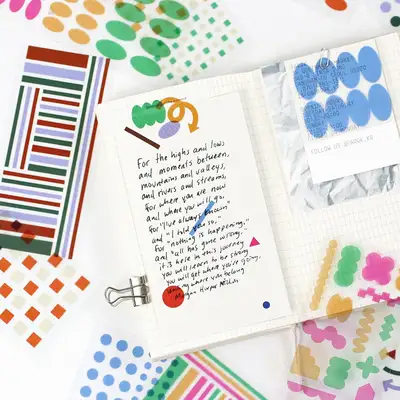 For the highs and lows
and moments between,
mountains and valleys,
and rivers and streams,
For where you are now
and where you will go,
For "I've always known"
and "I told you so,"
For "nothing is happening,"
and "all has gone wrong,"
it is here in this journey
you will learn to be strong
you will get where you're going,
landing where you belong.
Morgan Harper Nichols
FOLLOW US